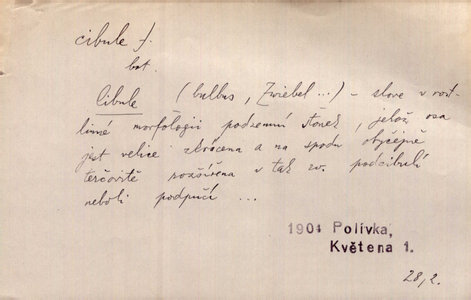 cibule f.
bot.
Cibule (bulbus, Zwiebel...) – slove v rost-
linné morfologii podzemní stonek, jehož osa
jest velice zkrácena a na spodu obyčejně
terčovitě rozšířena v tak zv. podcibulí
neboli podpučí ...
1901 Polívka,
Květena 1.
28,2.